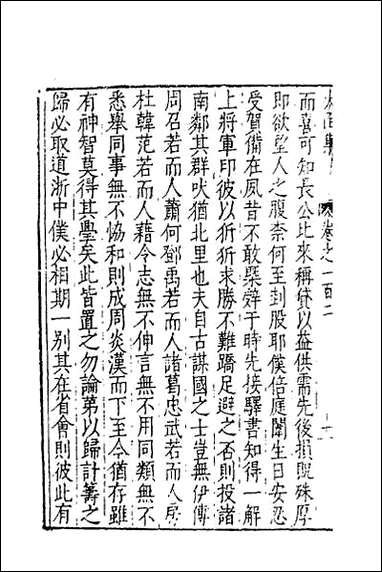 太函集 卷之一百二
而喜可知長公比來稱貸以益供需先後損貺殊厚
即欲望人之腹奈何至刲股耶僕倍庭闈生日安忍
受賀備在夙昔不敢槩辭于時先接驛書知得一解
上將軍印彼以狺狺求勝不難蹻足避之否則投諸
南鄰其群吠猶北里也夫自古謀國之士豈無伊傅
周召若而人蕭何鄧禹若而人諸葛忠武若而人房
杜韓范若而人藉令志無不伸言無不用同類無不
悉舉同事無不恊和則成周炎漢而下至今猶存雖
有神智莫得其學矣此皆置之勿論第以歸計籌之
歸必取道浙中僕必相期一別其在省會則彼此有